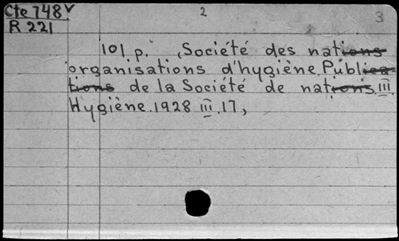 Cte 748v 2 3
R 221
101 p. , Société des nations
organisations d'hygiène. Publica
tions de la Société de nations. III.
Hygiène. 1928. III. 17,